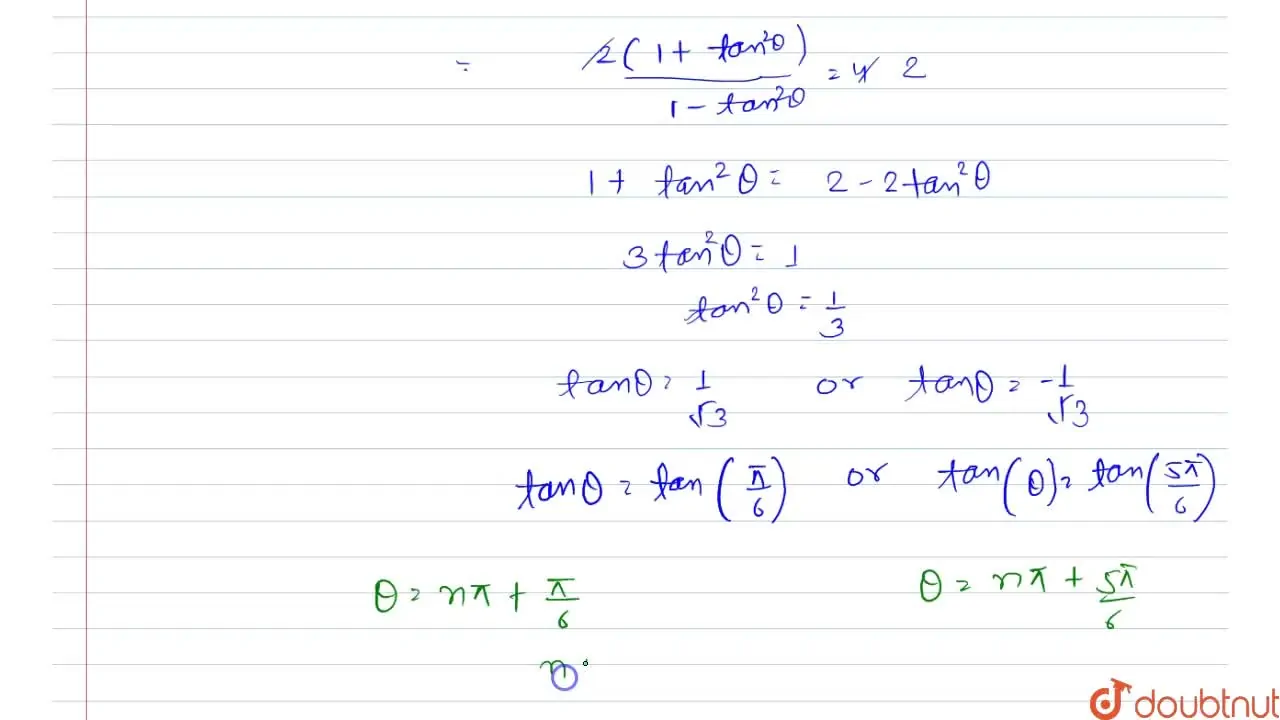 = 2(1 + tan²θ) / 1 - tan²θ = 4 2
1 + tan²θ = 2 - 2tan²θ
3tan²θ = 1
tan²θ = 1/3
tanθ = 1/√3 or tanθ = -1/√3
tanθ = tan(π/6) or tan(θ) = tan(5π/6)
θ = nπ + π/6 θ = nπ + 5π/6
n
doubtnut